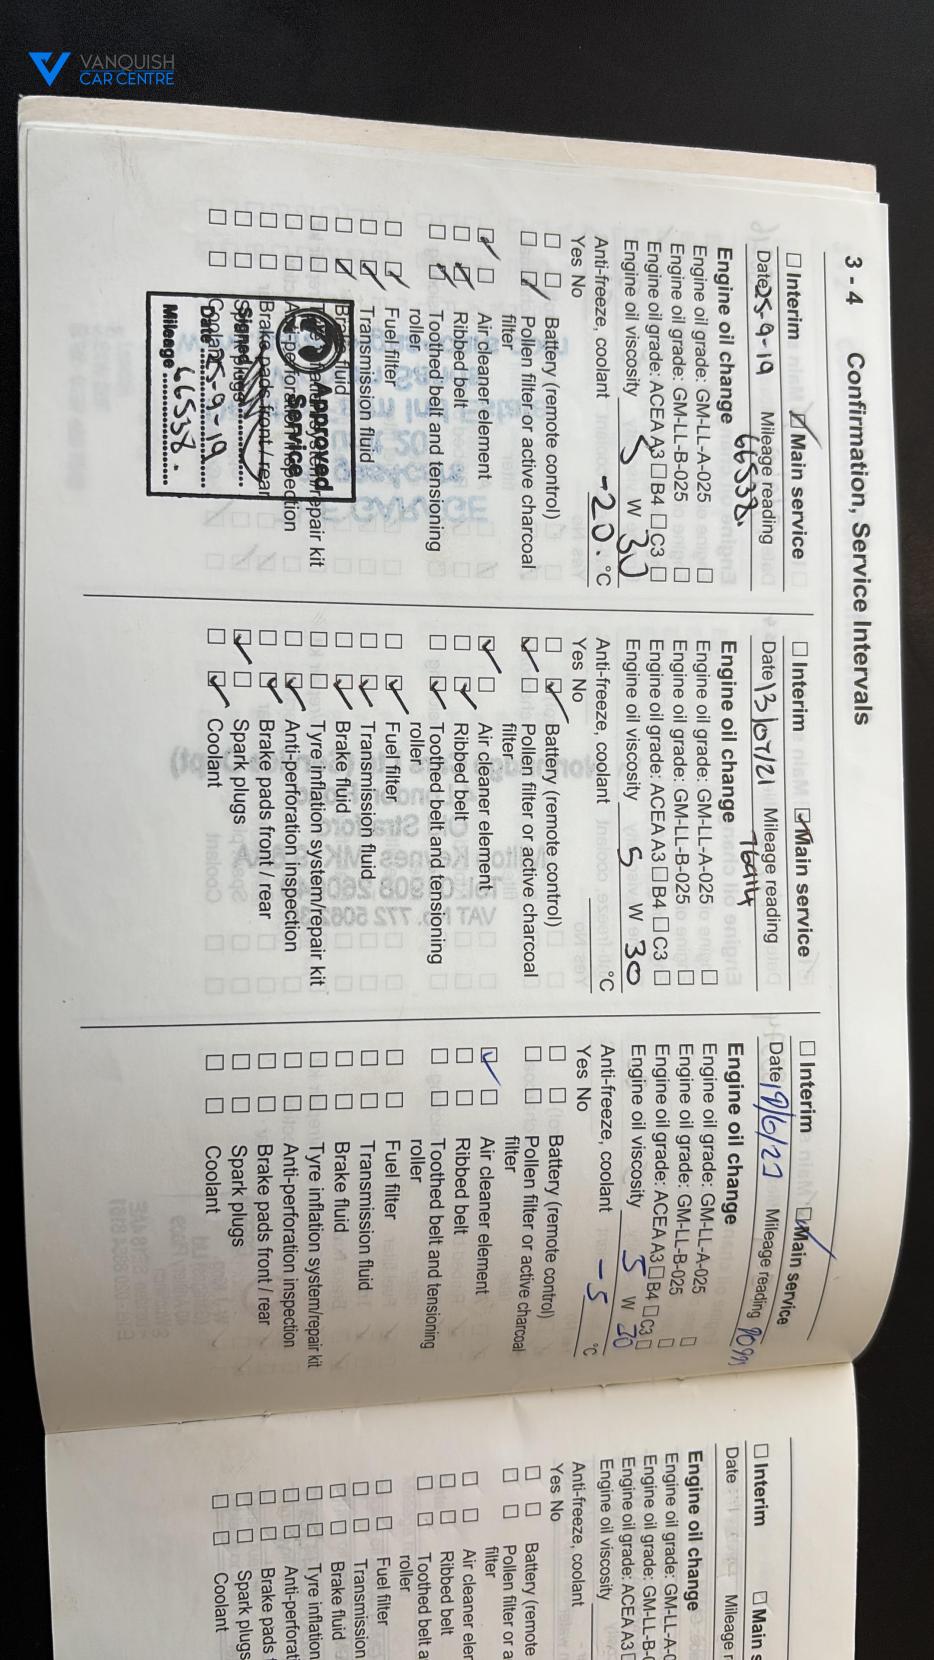 VANQUISH
CAR CENTRE
3 - 4 Confirmation, Service Intervals
Interim Main service
Date 25-9-19 Mileage reading
66538.
Engine oil change
Engine oil grade: GM-LL-A-025
Engine oil grade: GM-LL-B-025
Engine oil grade: ACEA A3 B4 C3
Engine oil viscosity 5 W 30
Anti-freeze, coolant -20. °C
Yes No
Battery (remote control)
Pollen filter or active charcoal
filter
Air cleaner element
Ribbed belt
Toothed belt and tensioning
roller
Fuel filter
Transmission fluid
Brake fluid
Tyre inflation system/repair kit
Anti-perforation inspection
Brake pads front / rear
Spark plugs
Coolant
Approved
Service
Signed
Date 25-9-19
Mileage 66538.
Interim Main service
Date 13/07/21 Mileage reading
Engine oil change
Engine oil grade: GM-LL-A-025
Engine oil grade: GM-LL-B-025
Engine oil grade: ACEA A3 B4 C3
Engine oil viscosity 5 W 30
Anti-freeze, coolant °C
Yes No
Battery (remote control)
Pollen filter or active charcoal
filter
Air cleaner element
Ribbed belt
Toothed belt and tensioning
roller
Fuel filter
Transmission fluid
Brake fluid
Tyre inflation system/repair kit
Anti-perforation inspection
Brake pads front / rear
Spark plugs
Coolant
Interim Main service
Date Mileage reading
Engine oil change
Engine oil grade: GM-LL-A-025
Engine oil grade: GM-LL-B-025
Engine oil grade: ACEA A3 B4 C3
Engine oil viscosity 5 W 30
Anti-freeze, coolant -5 °C
Yes No
Battery (remote control)
Pollen filter or active charcoal
filter
Air cleaner element
Ribbed belt
Toothed belt and tensioning
roller
Fuel filter
Transmission fluid
Brake fluid
Tyre inflation system/repair kit
Anti-perforation inspection
Brake pads front / rear
Spark plugs
Coolant
Interim Main s
Date Mileage r
Engine oil change
Engine oil grade: GM-LL-A-0
Engine oil grade: GM-LL-B-0
Engine oil grade: ACEA A3
Engine oil viscosity
Anti-freeze, coolant
Yes No
Battery (remote
Pollen filter or a
filter
Air cleaner eler
Ribbed belt
Toothed belt a
roller
Fuel filter
Transmission
Brake fluid
Tyre inflation
Anti-perforati
Brake pads
Spark plugs
Coolant